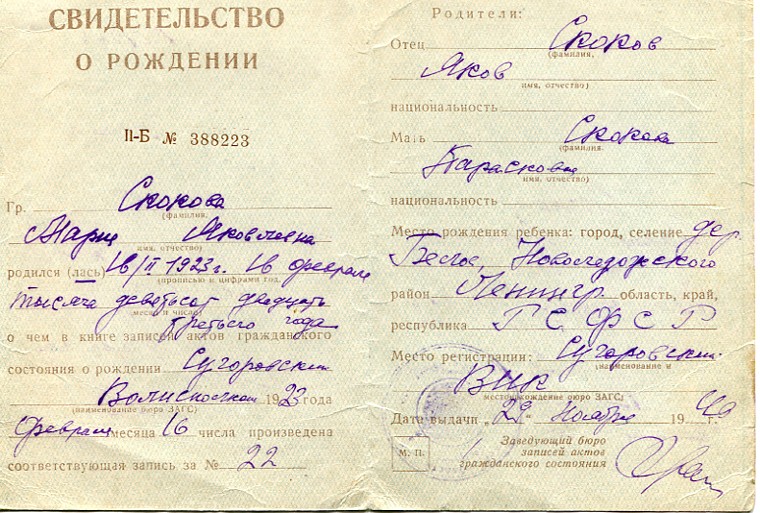 СВИДЕТЕЛЬСТВО
О РОЖДЕНИИ
II-Б № 388223
Гр. Скокова
(фамилия,
Мария Яковлевна
имя, отчество)
родился (лась) 16/II 1923г. 16 февраля
(прописью и цифрами год,
тысяча девятьсот двадцать
месяц и число)
третьего года
о чем в книге записей актов гражданского
состояния о рождении Сугоровским
Волисполком 1923 года
(наименование бюро ЗАГС)
февраля месяца 16 числа произведена
соответствующая запись за № 22
Родители:
Отец Скоков
(фамилия,
Яков
имя, отчество)
национальность
Мать Скокова
(фамилия,
Парасковья
имя, отчество)
национальность
Место рождения ребенка: город, селение дер.
район Ленингр область, край,
республика РСФСР
Место регистрации: Сугоровский
(наименование и
ВИК
местонахождение бюро ЗАГС)
Дата выдачи "29" Ноября 1940 г.
М. П.
Заведующий бюро
записей актов
гражданского состояния